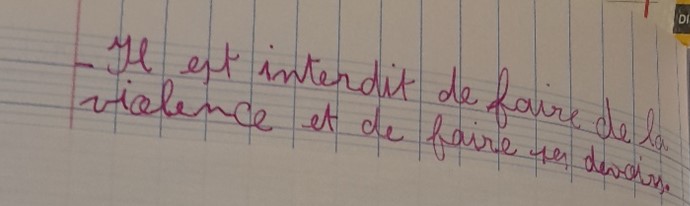 - Il est interdit de faire de la
violence et de faire ses devoirs.